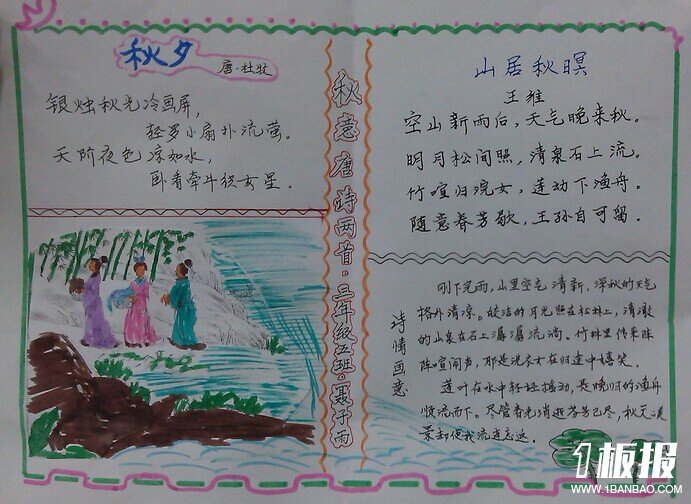 秋夕
唐·杜牧
银烛秋光冷画屏,
轻罗小扇扑流萤。
天阶夜色凉如水,
卧看牵牛织女星.
秋意唐诗两首·三年级五班·聂子雨
山居秋暝
王维
空山新雨后,天气晚来秋。
明月松间照,清泉石上流。
竹喧归浣女,莲动下渔舟。
随意春芳歇,王孙自可留。
诗情画意
刚下完雨,山里空气清新,深秋的天气
格外清凉。皎洁的月光照在松林上,清澈
的山泉在石上潺潺流淌。竹林里传来阵
阵喧闹声,那是洗衣女在归途中嬉笑。
莲叶在水中轻轻摇动,是晚归的渔舟
顺流而下。尽管春光消逝芳芳已尽,秋天
景却使我流连忘返。
1板报
WWW.1BANBAO.COM